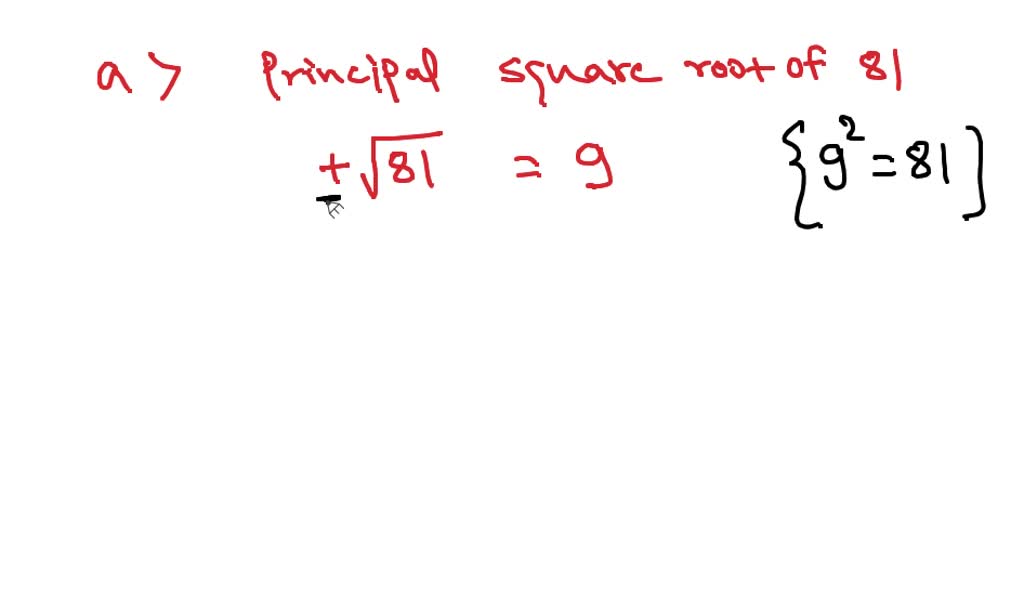 a> Principal square root of 81
+√81 = 9 {9² = 81]